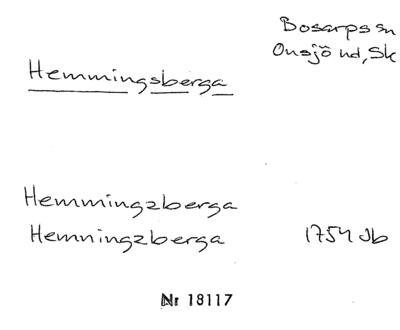 Bosarps sn
Onsjö hd, Sk
Hemmingsberga
Hemmingzberga
Hemningzberga 1754 Jb
Nr 18117